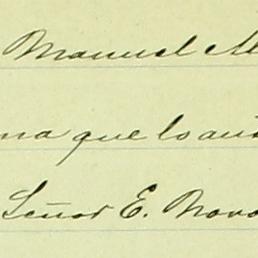 Manuel M
ma que lo au
Señor E. Novo